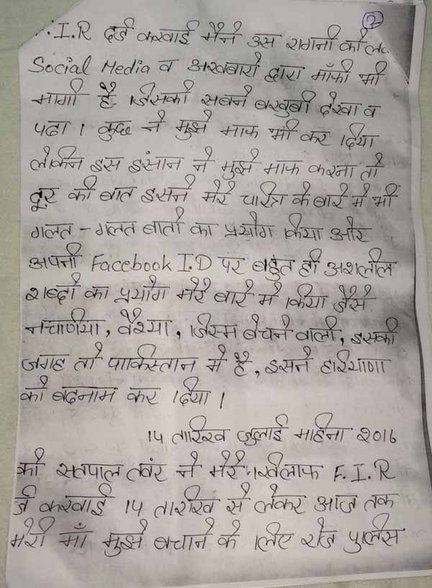 2
.I.R दर्ज करवाई मैने उस रागनी को ले
Social Media व अखबारो द्वारा माँफी भी
मागी है जिसको सबने बखुबी देखा व
पढा। कुछ ने मुझे माफ भी कर दिया
लेकिन इस इंसान ने मुझे माफ करना तो
दूर की बात इसने मेरे चारित्र के बारे मे भी
गलत - गलत बातो का प्रयोग किया और
अपनी Facebook I.D पर बहुत ही अशलील
शब्दो का प्रयोग मेरे बारे मे किया जैसे
नचाणीया, वैश्या, जिस्म बेचने वाली, इसकी
जगह तो पाकिस्तान मे है, इसने हरियाणा
को बदनाम कर दिया।
14 तारिख जुलाई माहिना 2016
को सतपाल तवंर ने मेरे खिलाफ F.I.R
र्ज करवाई 14 तारीख से लेकर आज तक
मेरी माँ मुझे बचाने के लिए रोज पुलिस